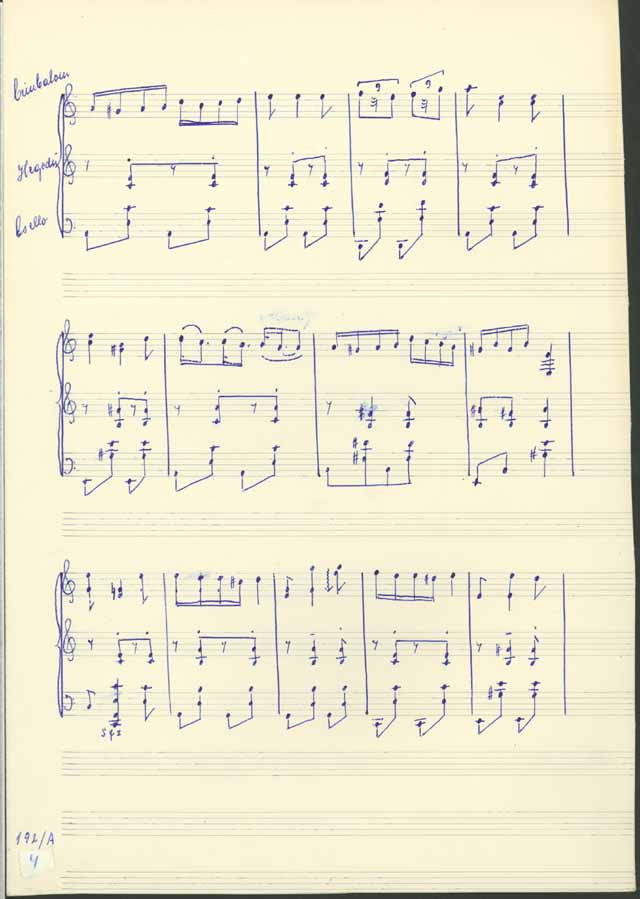 Cimbalom
Hegedű
Csello
3 3
sfz
192/A
4